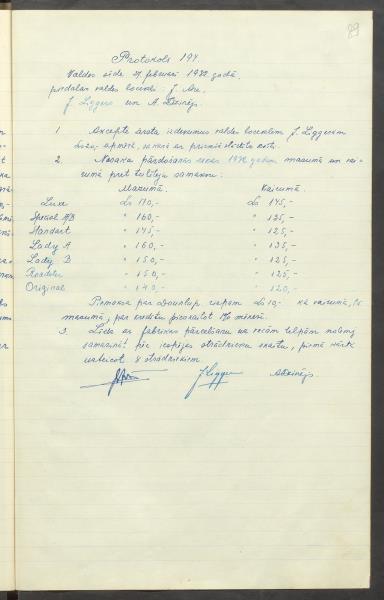 89
Protokols 194.
Valdes sēde 27. februarī 1932. gadā,
piedalās valdes locekļi: J.
J. Liggers un A. Dzinējs.
1. Akceptē ārsta izdevumus valdes loceklim J. Liggeram
apmērā, saskaņā ar
2. Nosaka pārdošanas cenas 1932. gadam mazumā un vai-
rumā pret tūlītēju samaksu:
Mazumā: Vairumā:
Luxe Ls 170,- Ls 145,-
Special A/B " 160,- " 135,-
Standart " 145,- " 125,-
Lady A " 160,- " 135,-
Lady B " 150,- " 125,-
Roadster " 150,- " 125,-
Original " 140,- " 120,-
Piemaksa par Dounlup riepām Ls 10,- kā vairumā, tā
mazumā, par kreditu pieskaitot 1% mēnesī.
3. Līdz ar fabrikas pārcelšanu uz jaunām telpām
samazināt pēc iespējas strādnieku skaitu, pirmā kārtā
atteicot 4 strādniekiem.
J. Liggers ADzinējs.